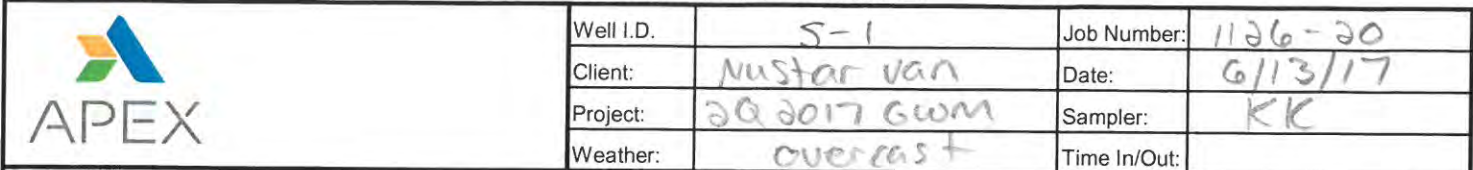 Well I.D. S-1 Job Number: 1126-20
Client: Nustar Van Date: 6/13/17
Project: 2Q 2017 GWM Sampler: KK
Weather: overcast Time In/Out:
APEX